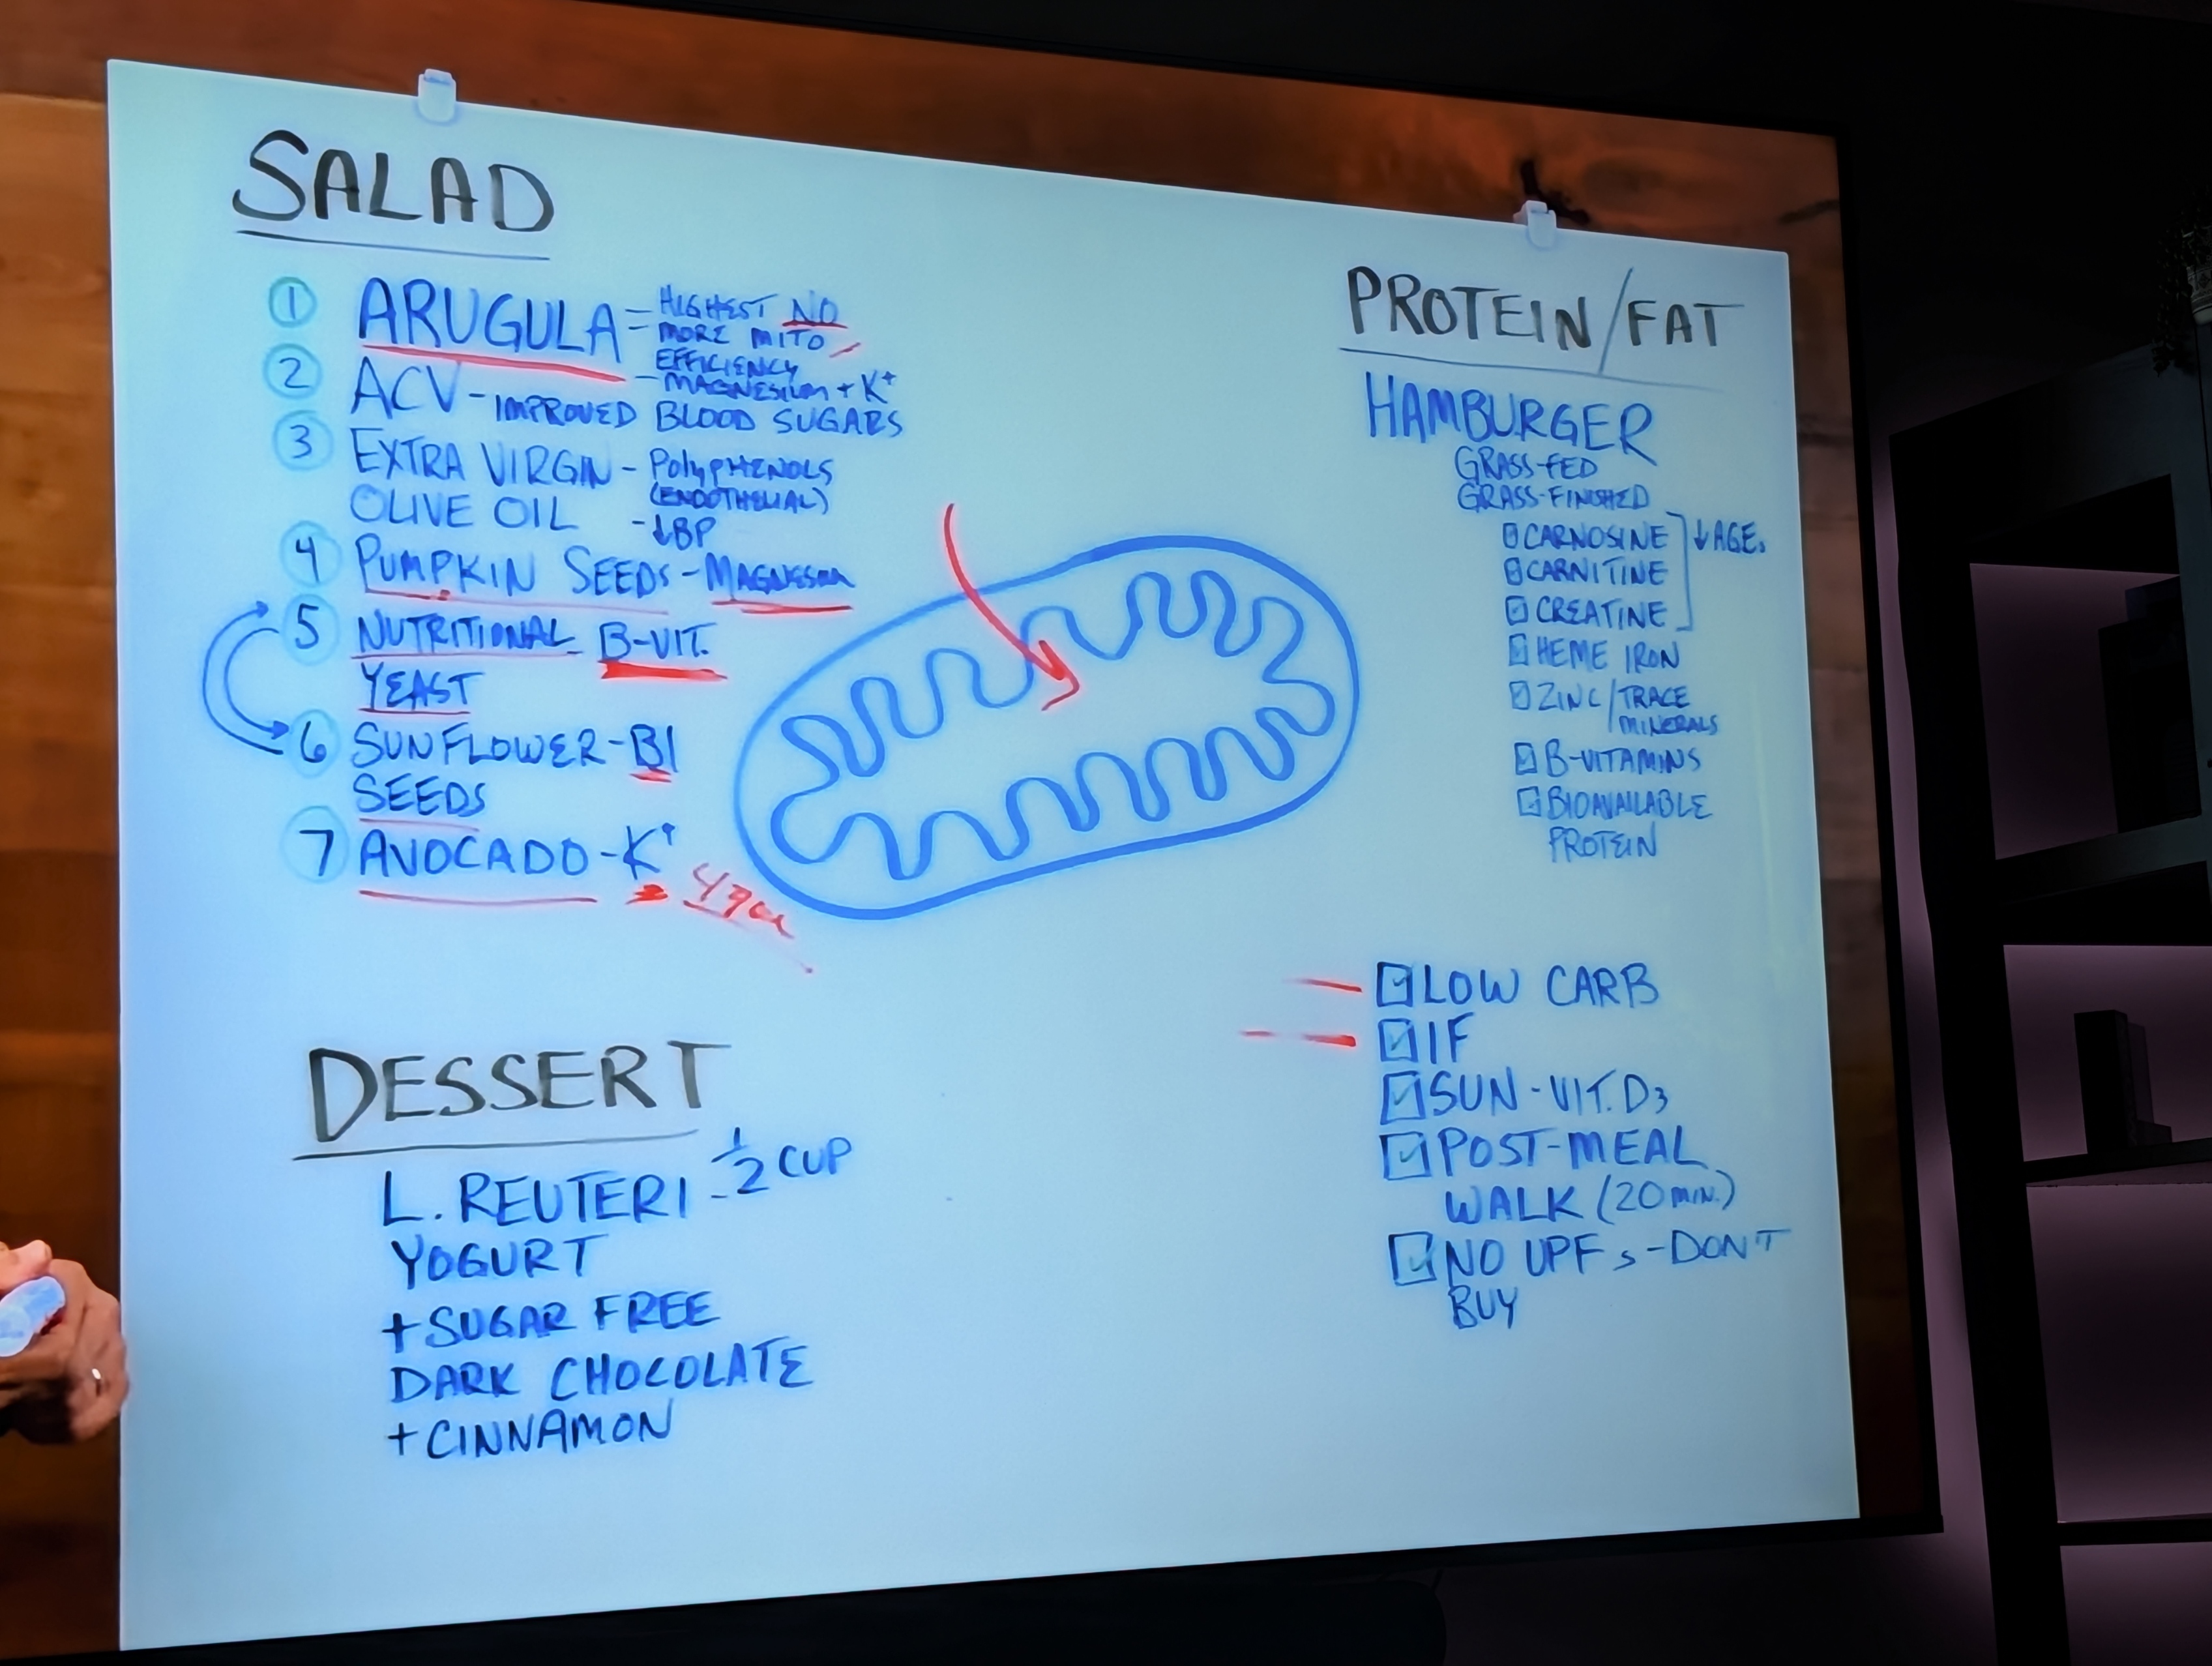 SALAD
1 ARUGULA = HIGHEST NO
MORE MITO
EFFICIENCY
- MAGNESIUM + K+
2 ACV - IMPROVED BLOOD SUGARS
3 EXTRA VIRGIN - POLYPHENOLS
OLIVE OIL (ENDOTHELIAL)
- ↓BP
4 PUMPKIN SEEDS - MAGNESIUM
5 NUTRITIONAL - B-VIT.
YEAST
6 SUNFLOWER - B1
SEEDS
7 AVOCADO - K+
DESSERT
L. REUTERI - 1/2 CUP
YOGURT
+ SUGAR FREE
DARK CHOCOLATE
+ CINNAMON
PROTEIN/FAT
HAMBURGER
GRASS-FED
GRASS-FINISHED
☑ CARNOSINE ] ↓AGEs
☑ CARNITINE
☑ CREATINE
☑ HEME IRON
☑ ZINC/TRACE
MINERALS
☑ B-VITAMINS
☑ BIOAVAILABLE
PROTEIN
☑ LOW CARB
☑ IF
☑ SUN - VIT. D3
☑ POST-MEAL
WALK (20 MIN.)
☑ NO UPFs - DON'T
BUY